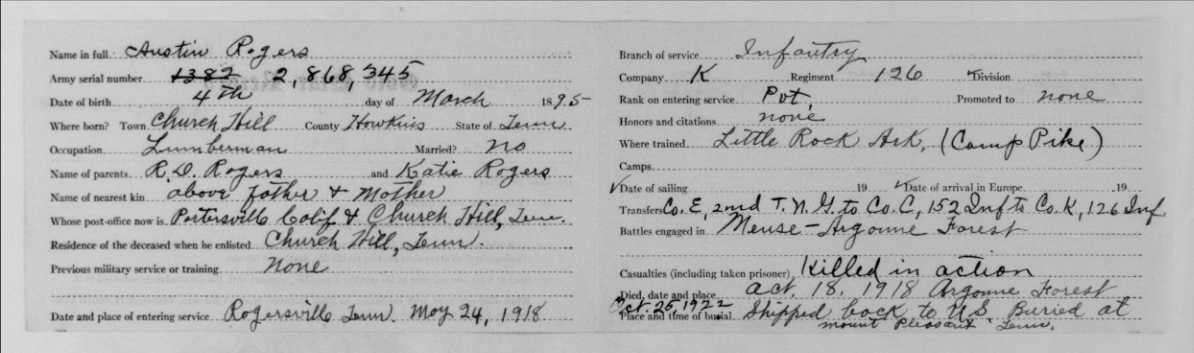 Name in full Austin Rogers
Army serial number 1382 2,868,345
Date of birth 4th day of March 1895
Where born? Town Church Hill County Howkins State of Tenn
Occupation Lumberman Married? no
Name of parents R.D. Rogers and Katie Rogers
Name of nearest kin above father & Mother
Whose post-office now is Portersville Calif & Church Hill, Tenn.
Residence of the deceased when he enlisted Church Hill, Tenn.
Previous military service or training none
Date and place of entering service Rogersville Tenn. May 24, 1918
Branch of service Infantry
Company K Regiment 126 Division
Rank on entering service Pvt. Promoted to none
Honors and citations none
Where trained Little Rock Ark. (Camp Pike)
Camps
Date of sailing 19 Date of arrival in Europe 19
Transfers Co. E, 2nd T.N.G. to Co. C, 152 Inf to Co. K, 126 Inf
Battles engaged in Meuse-Argonne Forest
Casualties (including taken prisoner) Killed in action
Died, date and place Oct. 18, 1918 Argonne Forest
Oct. 25, 1922
Place and time of burial Shipped back to U.S. Buried at
mount Pleasant, Tenn.